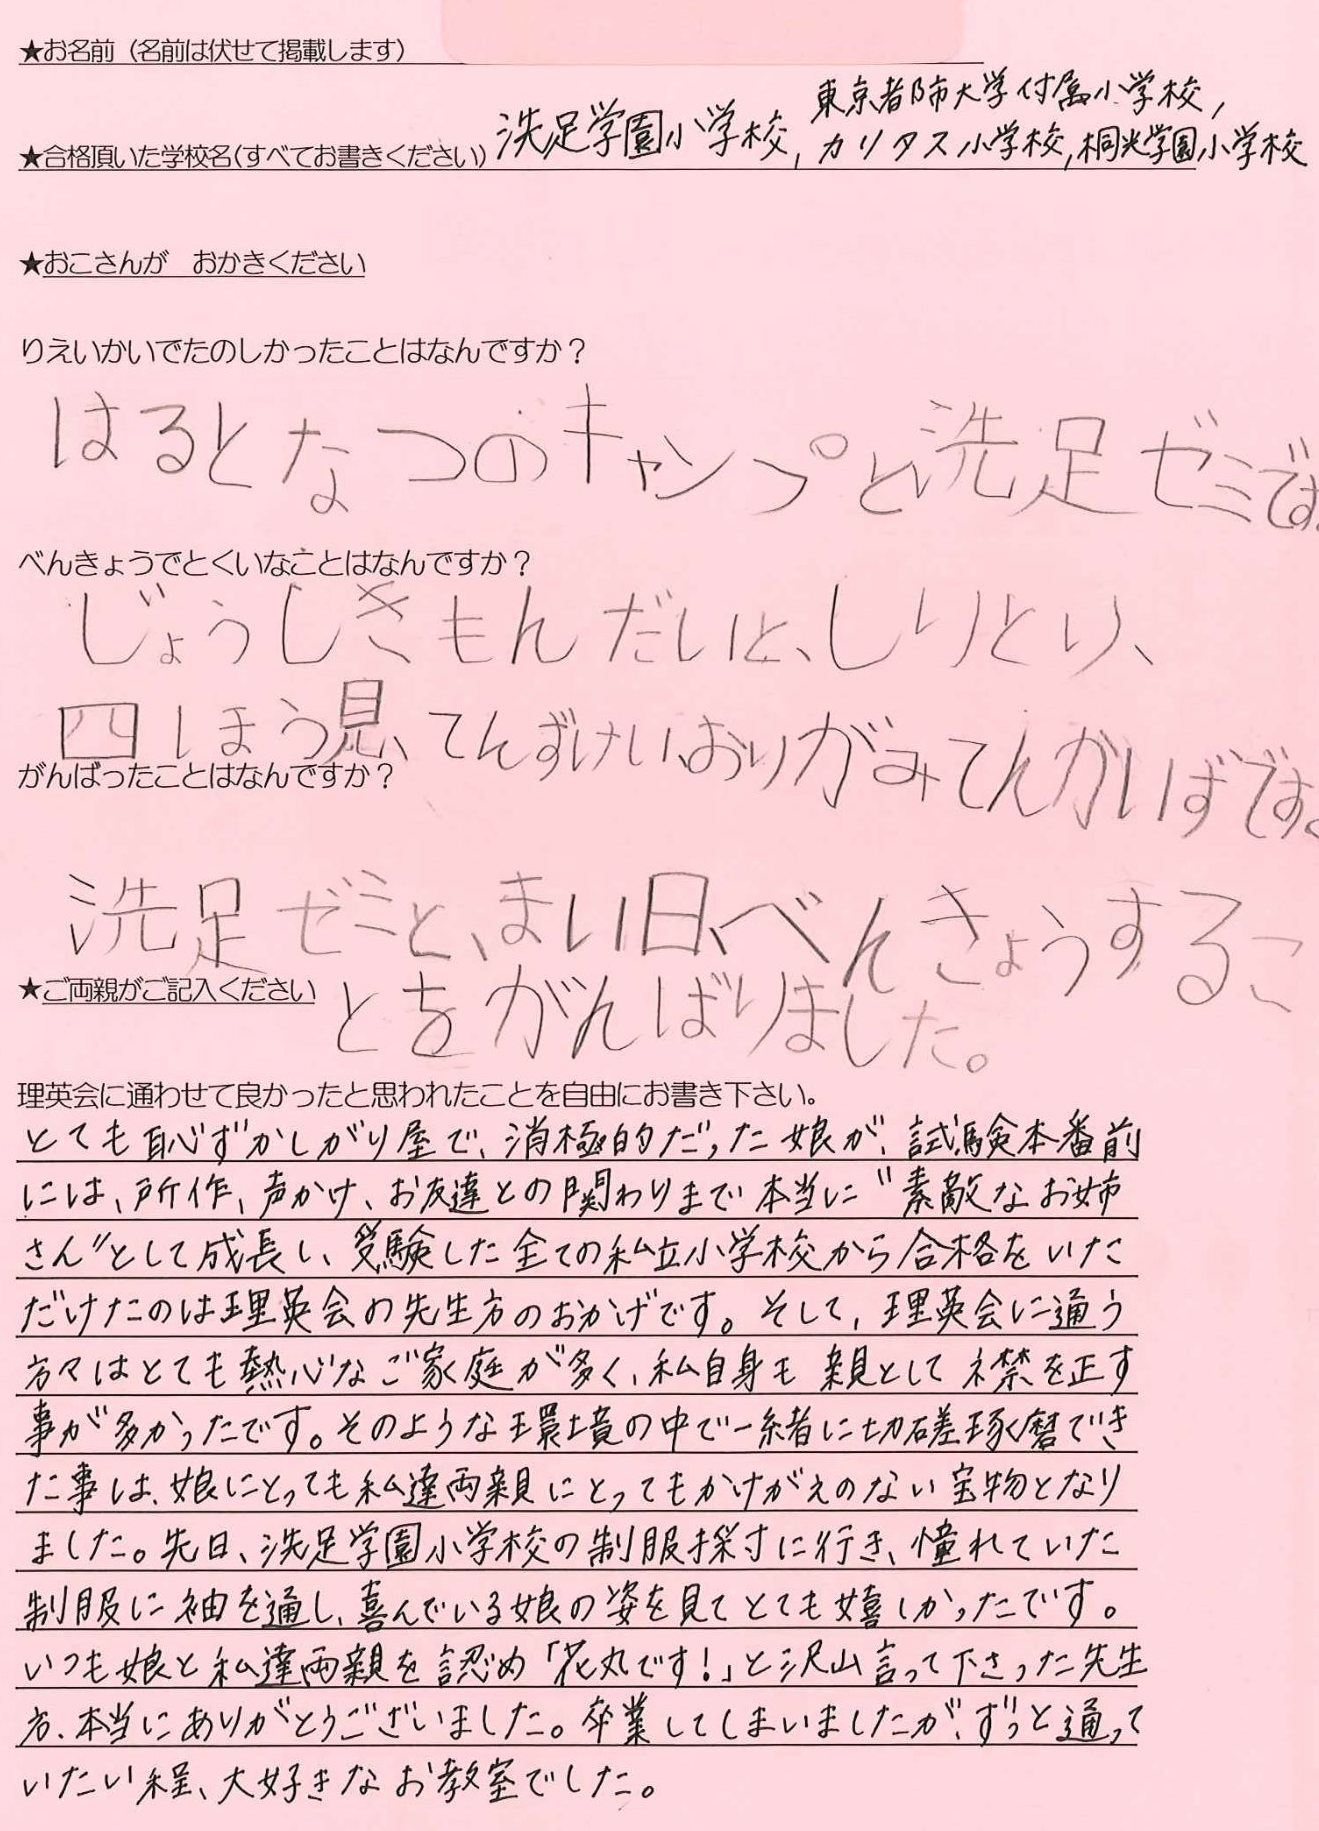 ★お名前（名前は伏せて掲載します）
東京都市大学付属小学校,
★合格頂いた学校名(すべてお書きください) 洗足学園小学校, カリタス小学校, 桐光学園小学校
★おこさんが　おかきください
りえいかいでたのしかったことはなんですか？
はるとなつのキャンプと、洗足ゼミです。
べんきょうでとくいなことはなんですか？
じょうしきもんだいと、しりとり、
四しほう見、てんずけい、おりがみてんかいずです。
がんばったことはなんですか？
洗足ゼミと、まい日、べんきょうするこ
とをがんばりました。
★ご両親がご記入ください
理英会に通わせて良かったと思われたことを自由にお書き下さい。
とても恥ずかしがり屋で、消極的だった娘が、試験本番前
には、所作、声かけ、お友達との関わりまで本当に〝素敵なお姉
さん〟として成長し、受験した全ての私立小学校から合格をいた
だけたのは理英会の先生方のおかげです。そして、理英会に通う
方々はとても熱心なご家庭が多く、私自身も親として襟を正す
事が多かったです。そのような環境の中で一緒に切磋琢磨でき
た事は、娘にとっても私達両親にとってもかけがえのない宝物となり
ました。先日、洗足学園小学校の制服採寸に行き、憧れていた
制服に袖を通し、喜んでいる娘の姿を見てとても嬉しかったです。
いつも娘と私達両親を認め「花丸です！」と沢山言って下さった先生
方、本当にありがとうございました。卒業してしまいましたが、ずっと通って
いたい程、大好きなお教室でした。